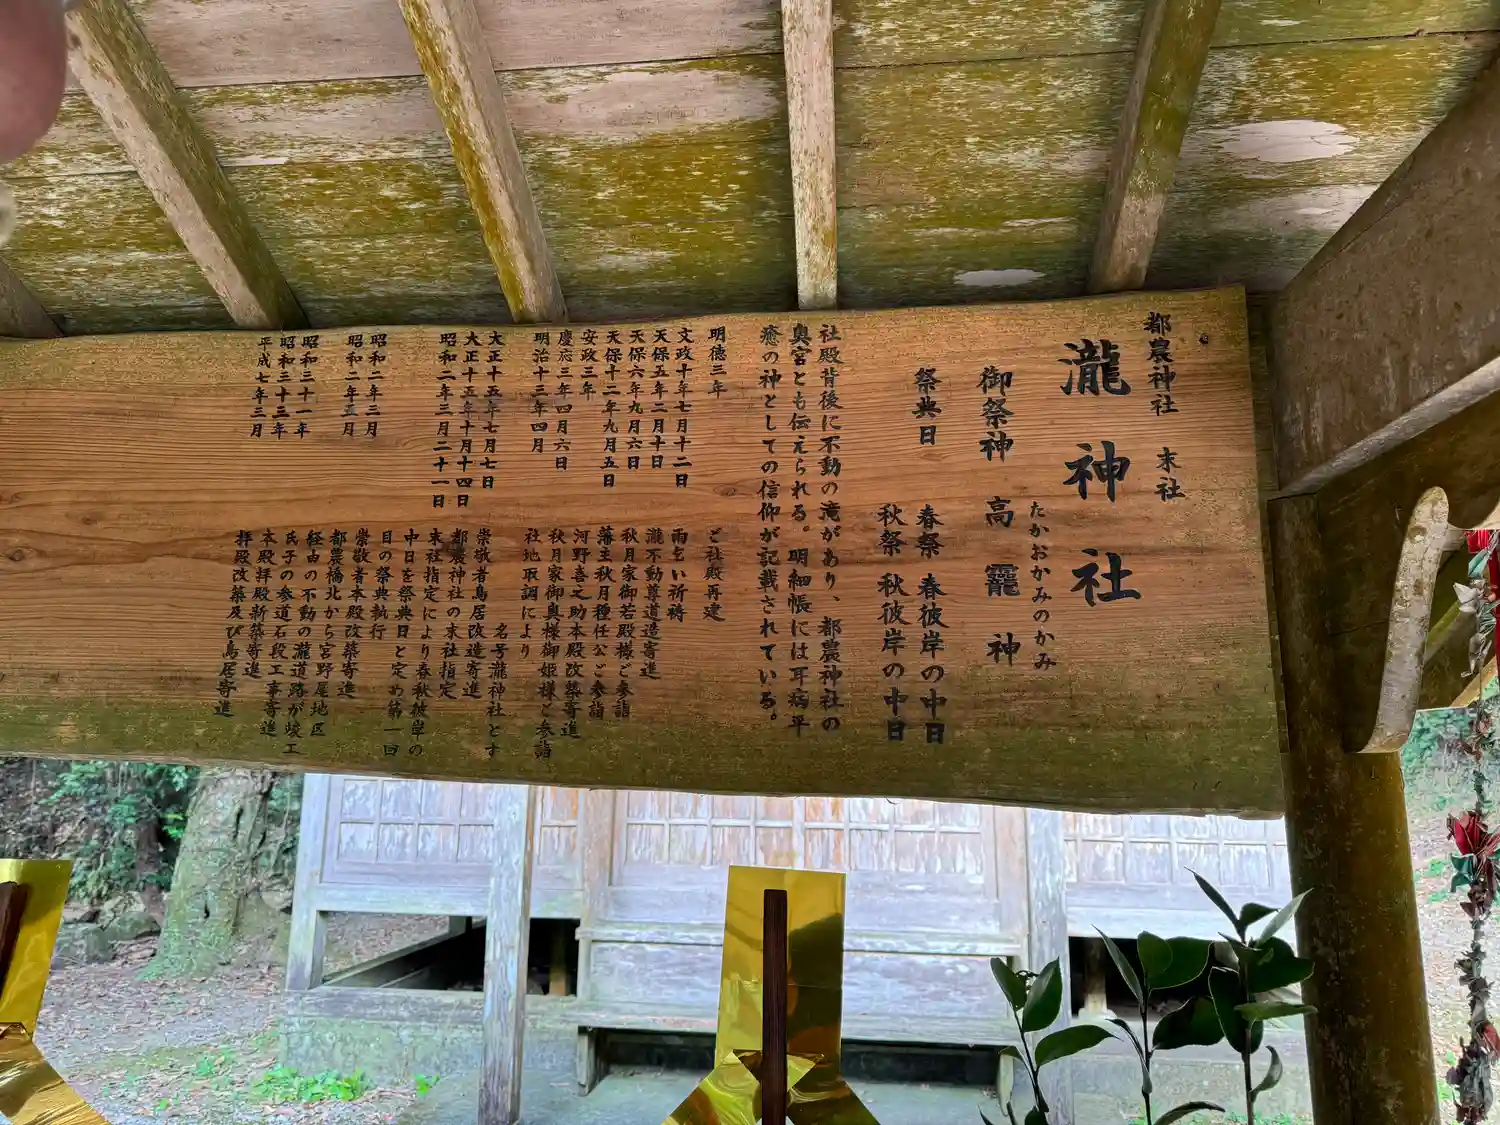 都農神社 末社
瀧神社
たかおかみのかみ
御祭神 高龗神
祭典日 春祭 春彼岸の中日
秋祭 秋彼岸の中日
社殿背後に不動の滝があり、都農神社の
奥宮とも伝えられる。明細帳には耳病平
癒の神としての信仰が記載されている。
明徳三年 ご社殿再建
文政十年七月十二日 雨乞い祈祷
天保五年二月十日 瀧不動尊道造寄進
天保六年九月六日 秋月家御若殿様ご参詣
天保十二年九月五日 藩主秋月種任公ご参詣
安政三年 河野喜之助本殿改築寄進
慶応三年四月六日 秋月家御奥様御姫様ご参詣
明治十三年四月 社地取調により
名号瀧神社とす
大正十五年七月七日 崇敬者鳥居改造寄進
大正十五年十月十四日 都農神社の末社指定
昭和二年三月二十一日 末社指定により春秋彼岸の
中日を祭典日と定め第一回
目の祭典執行
昭和二年三月 崇敬者本殿改築寄進
昭和二年五月 都農橋北から宮野尾地区
経由の不動の瀧道路が竣工
昭和三十一年 氏子の参道石段工事寄進
昭和三十三年 本殿拝殿新築寄進
平成七年三月 拝殿改築及び鳥居寄進